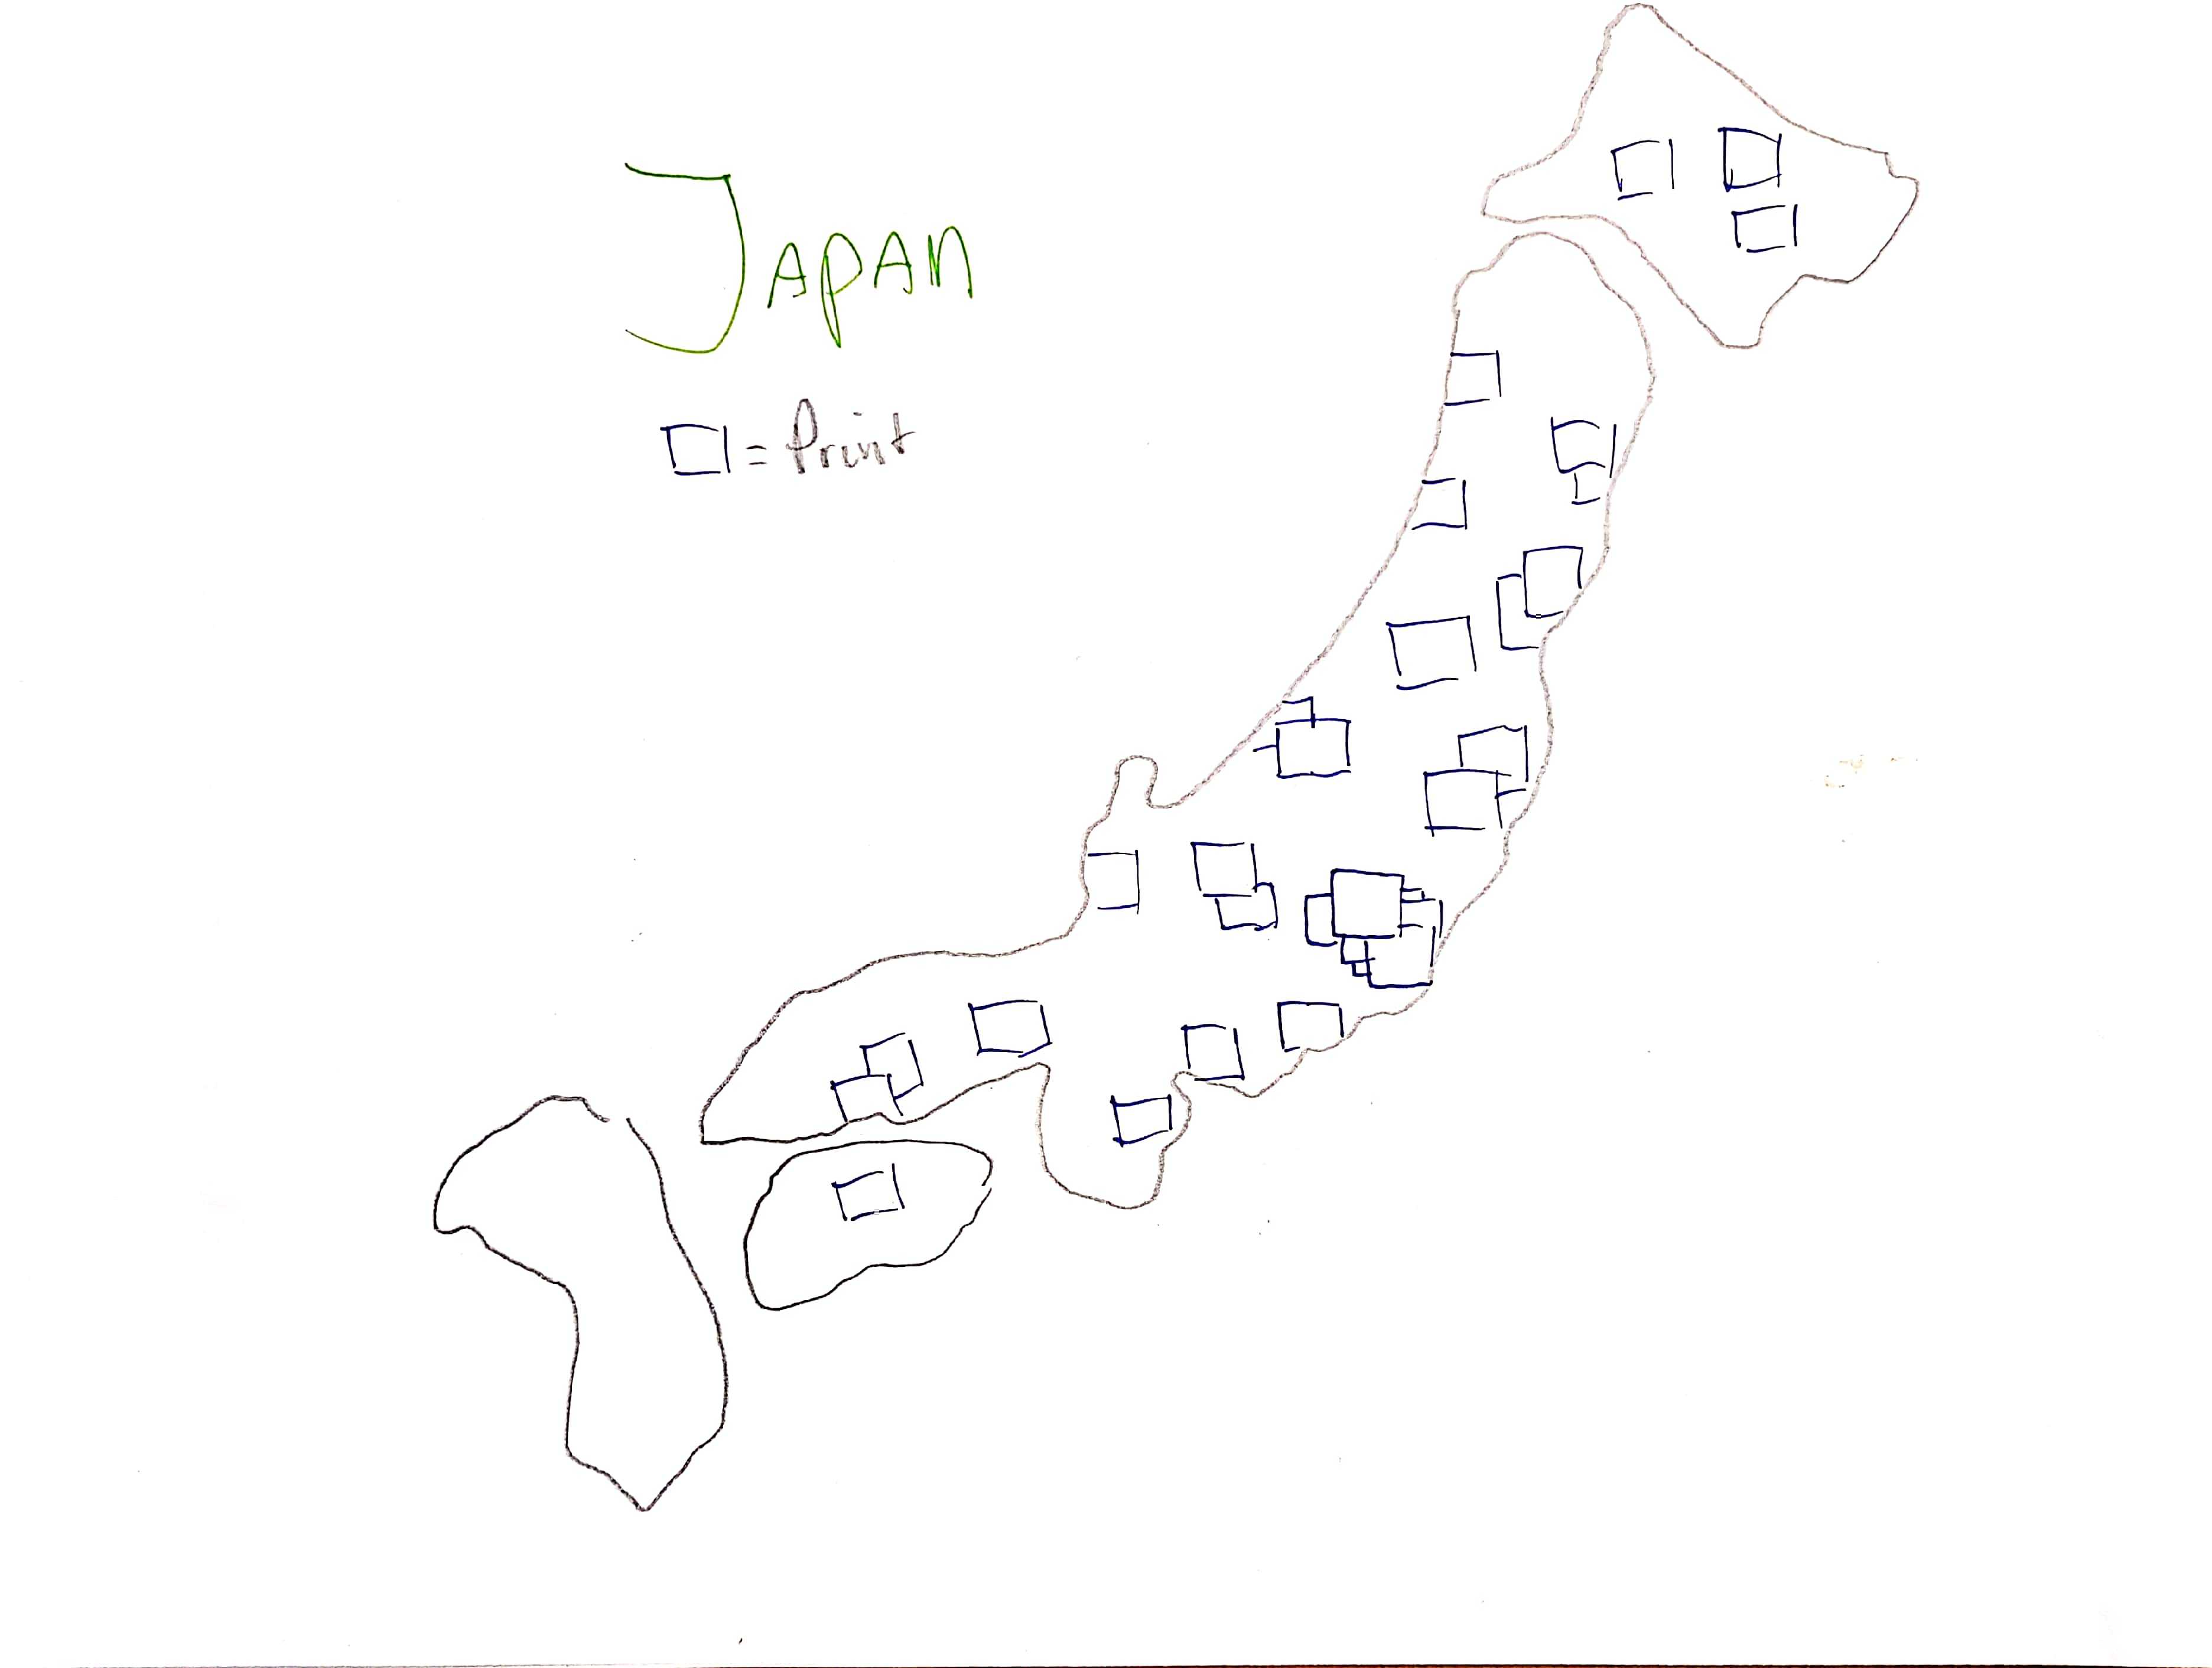 JAPAN
= Print